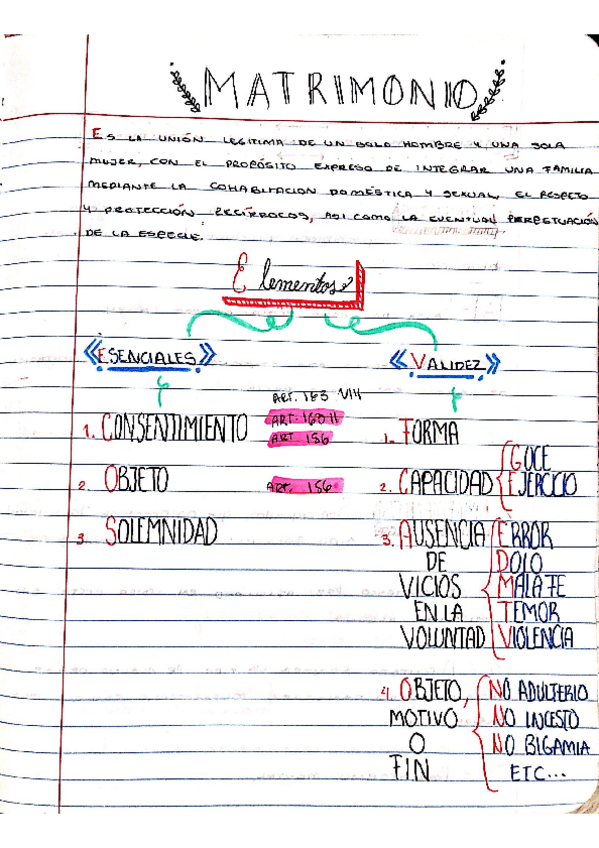 MATRIMONIO
ES LA UNIÓN LEGITIMA DE UN SOLO HOMBRE Y UNA SOLA
MUJER, CON EL PROPÓSITO EXPRESO DE INTEGRAR UNA FAMILIA
MEDIANTE LA COHABITACION DOMÉSTICA Y SEXUAL, EL RESPETO
Y PROTECCIÓN RECÍPROCOS, ASI COMO LA EVENTUAL PERPETUACIÓN
DE LA ESPECIE.
Elementos
«ESENCIALES»
1. CONSENTIMIENTO
2. OBJETO
3. SOLEMNIDAD
ART. 163 VII
ART. 168 II
ART 156
ART. 156
«VALIDEZ»
1. FORMA
2. CAPACIDAD
GOCE
EJERCICIO
3. AUSENCIA
DE
VICIOS
EN LA
VOLUNTAD
ERROR
DOLO
MALA FE
TEMOR
VIOLENCIA
4. OBJETO,
MOTIVO
O
FIN
NO ADULTERIO
NO INCESTO
NO BIGAMIA
ETC...